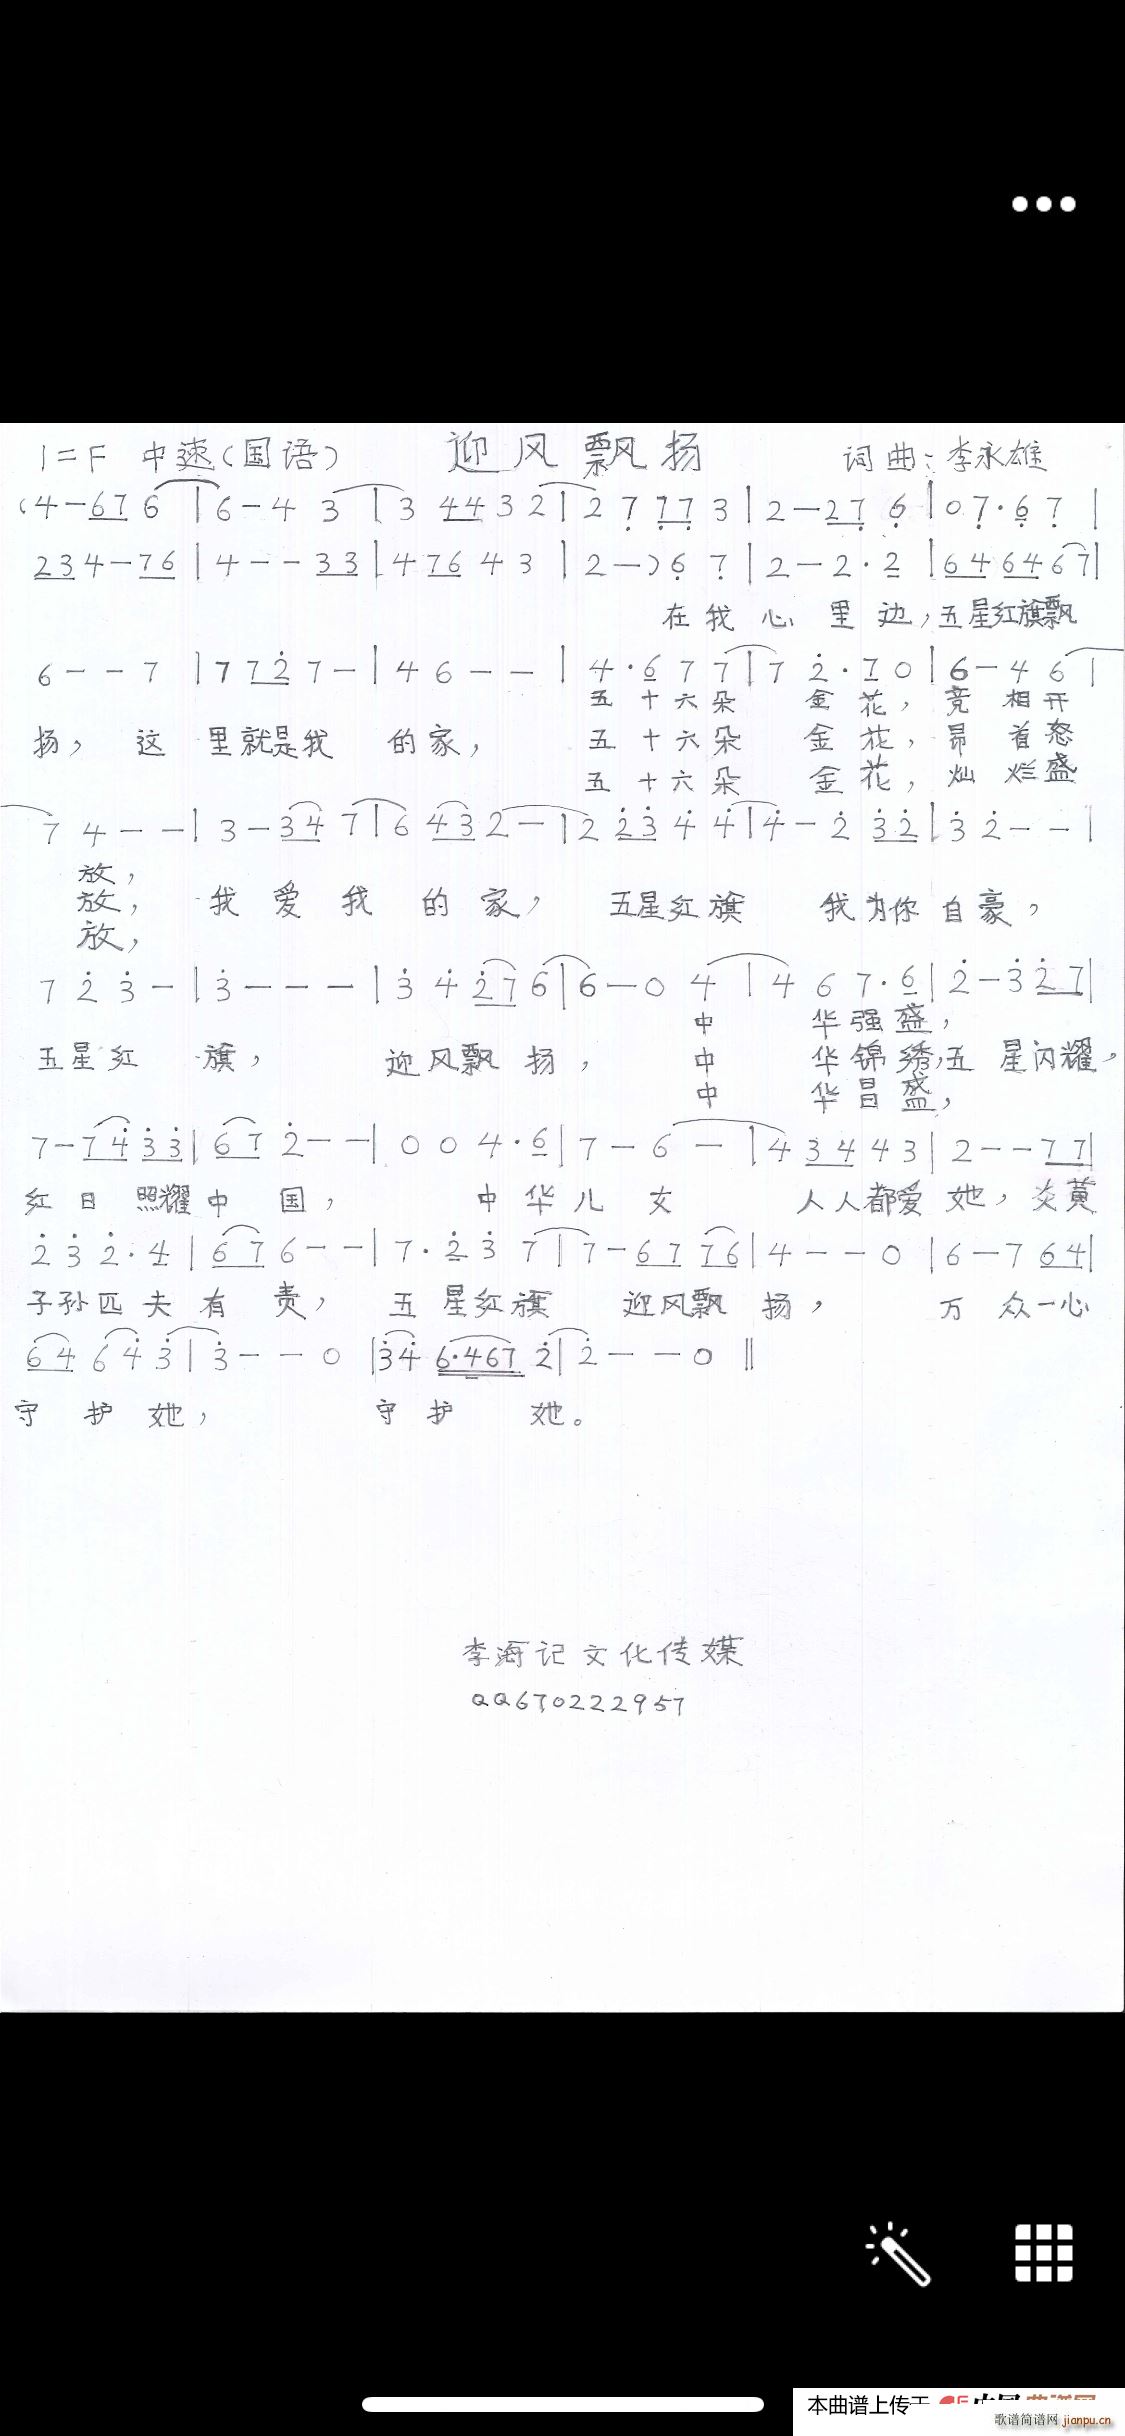 1=F 中速(国语) 迎风飘扬 词曲:李永雄
(4-676|6-43|34432|27773|2-276|07·67|
234-76|4--33|47643|2-)67|2-2·2|646467|
在我心里边,五星红旗飘
6--7|7727-|46--|4·677|72·70|6-46|
五十六朵金花,竞相开
扬,这里就是我的家,五十六朵金花,昂首怒
五十六朵金花,灿烂盛
74--|3-347|6432-|22344|4-232|32--|
放,
放,我爱我的家,五星红旗我为你自豪,
放,
723-|3---|34276|6-04|467·6|2-327|
中华强盛,
五星红旗,迎风飘扬,中华锦绣,五星闪耀,
中华昌盛,
7-7433|672--|004·6|7-6-|43443|2--77|
红日照耀中国,中华儿女人人都爱她,炎黄
232·4|676--|7·237|7-6776|4--0|6-764|
子孙匹夫有责,五星红旗迎风飘扬,万众一心
64643|3--0|346·4672|2--0‖
守护她,守护她。
李海记文化传媒
QQ670222957
本曲谱上传于
歌谱简谱网 jianpu.cn